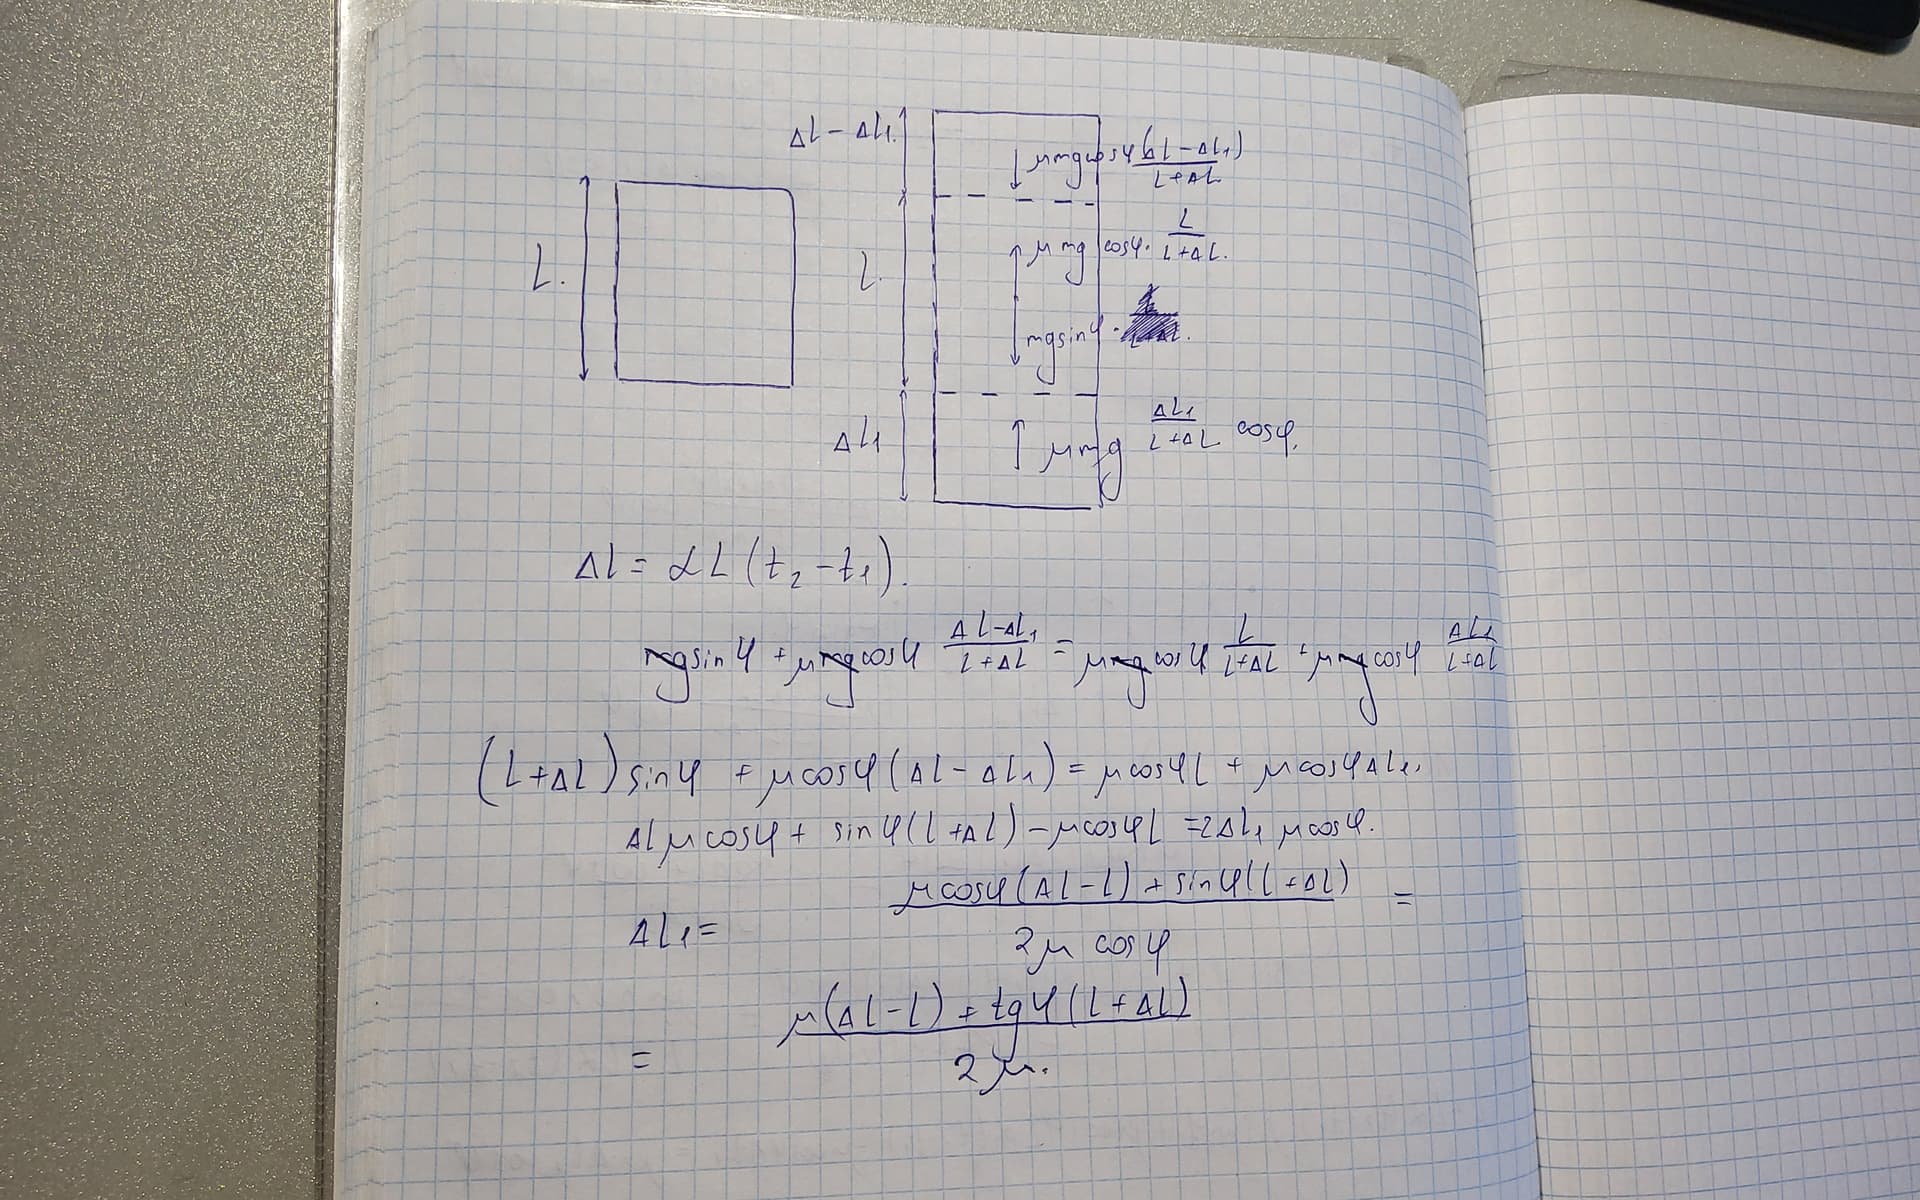 ΔL - ΔL₁.
μmgcosφ(ΔL-ΔL₁)/(L+ΔL)
L.
L.
μmg cosφ · L/(L+ΔL).
mgsinφ ·
ΔL₁
μmg ΔL₁/(L+ΔL) cosφ.
ΔL = αL(t₂-t₁).
mgsinφ + μmgcosφ (ΔL-ΔL₁)/(L+ΔL) = μmgcosφ L/(L+ΔL) + μmgcosφ ΔL₁/(L+ΔL)
(L+ΔL)sinφ + μcosφ(ΔL-ΔL₁) = μcosφL + μcosφΔL₁.
ΔLμcosφ + sinφ(L+ΔL) - μcosφL = 2ΔL₁μcosφ.
ΔL₁ = (μcosφ(ΔL-L) + sinφ(L+ΔL))/(2μcosφ) =
= (μ(ΔL-L) + tgφ(L+ΔL))/(2μ).